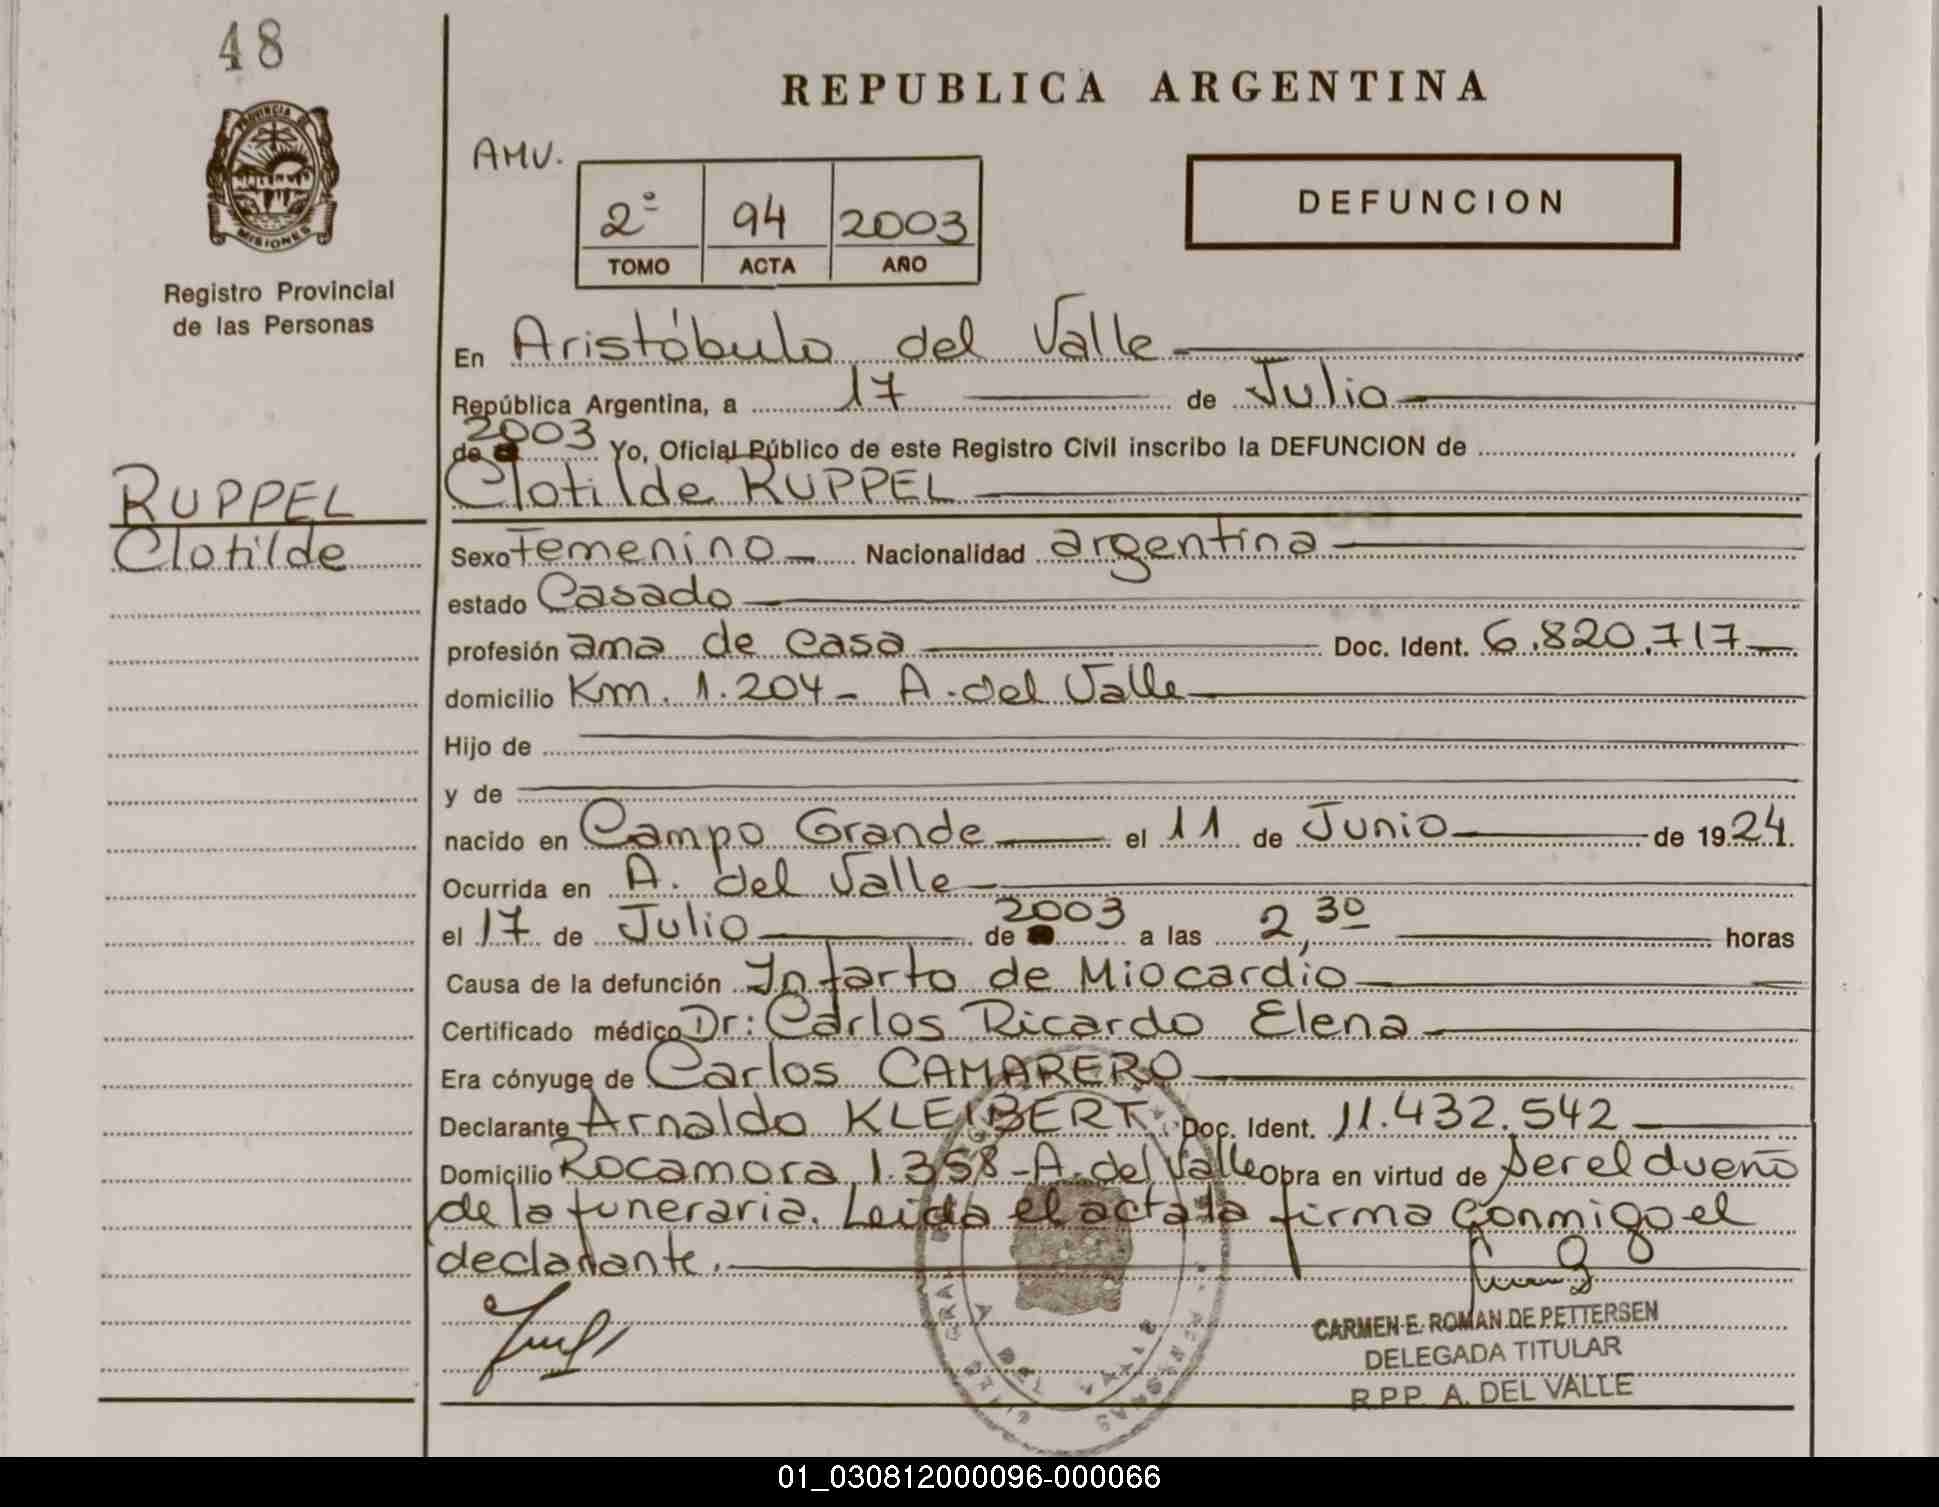 48
REPUBLICA ARGENTINA
PROVINCIA DE
MISIONES
Registro Provincial
de las Personas
AMV.
2º 94 2003
TOMO ACTA AÑO
DEFUNCION
En Aristóbulo del Valle
República Argentina, a 17 de Julio
de 2003 Yo, Oficial Público de este Registro Civil inscribo la DEFUNCION de
RUPPEL
Clotilde
Clotilde RUPPEL
Sexo Femenino Nacionalidad argentina
estado Casado
profesión ama de casa Doc. Ident. 6.820.717
domicilio Km. 1.204 - A. del Valle
Hijo de
y de
nacido en Campo Grande el 11 de Junio de 1924.
Ocurrida en A. del Valle
el 17 de Julio de 2003 a las 2,30 horas
Causa de la defunción Infarto de Miocardio
Certificado médico Dr: Carlos Ricardo Elena
Era cónyuge de Carlos CAMARERO
Declarante Arnaldo KLEIBERT Doc. Ident. 11.432.542
Domicilio Rocamora 1.358 - A. del Valle Obra en virtud de ser el dueño
de la funeraria. Leida el acta la firma conmigo el
declarante.
CARMEN E. ROMAN DE PETTERSEN
DELEGADA TITULAR
R.P.P. A. DEL VALLE
A DEL VALLE
01_030812000096-000066